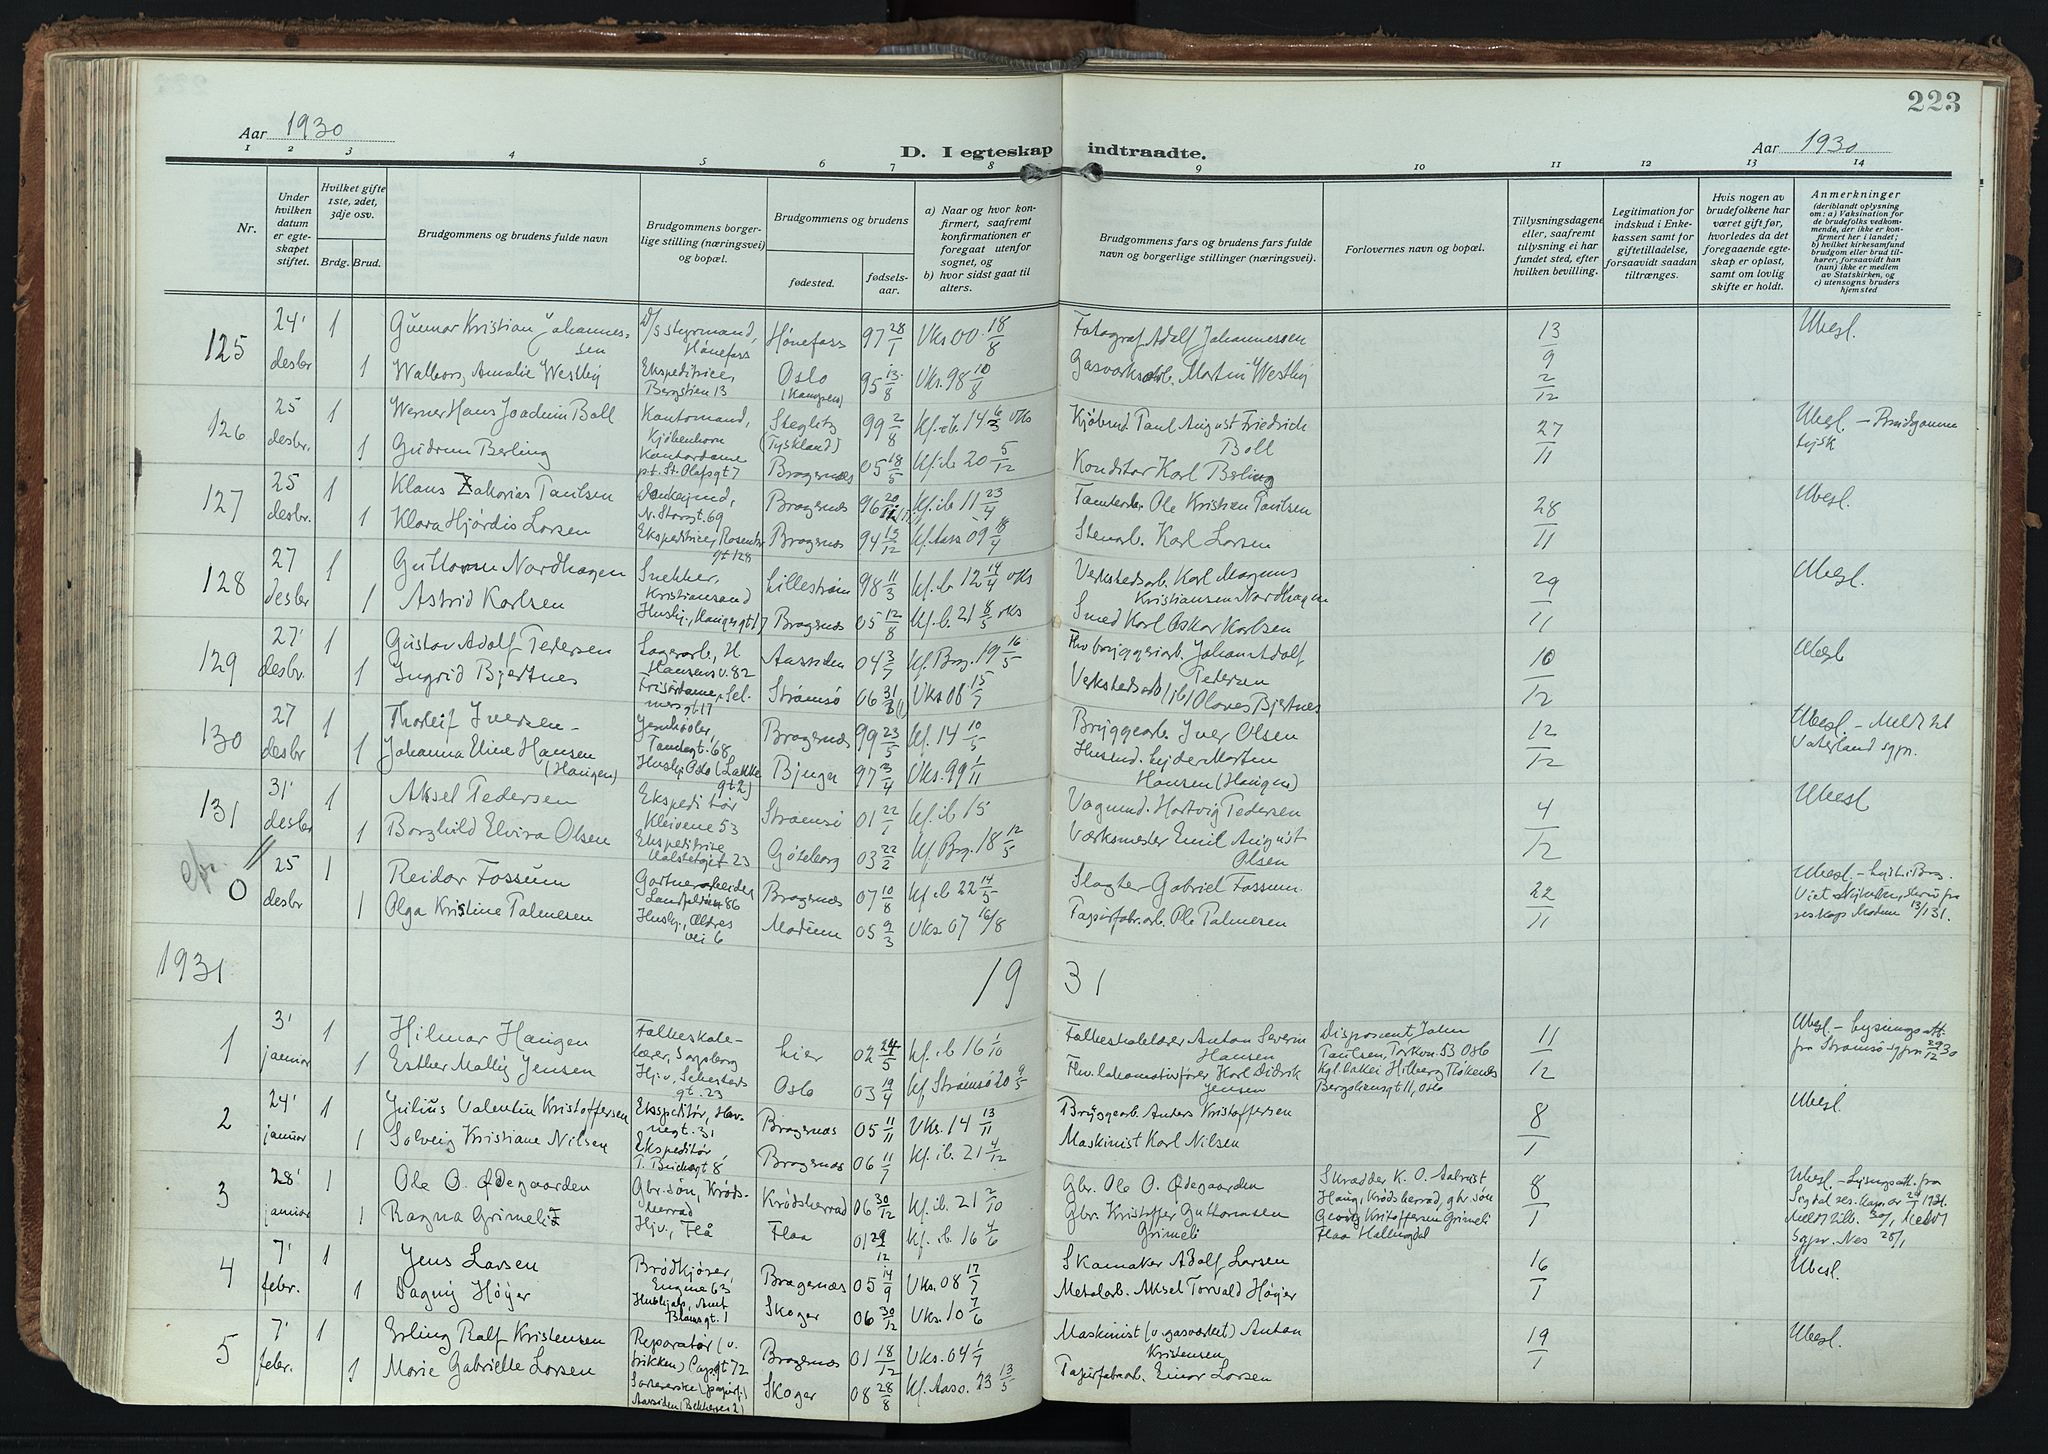 223
Aar 1930
Aar 1930
D. I egteskap indtraadte.
1 2 3 4 5 6 7 8 9 10 11 12 13 14
Nr.
Under hvilken datum er egteskapet stiftet.
Hvilket gifte 1ste, 2det, 3dje osv.
Brdg. Brud.
Brudgommens og brudens fulde navn
Brudgommens borgerlige stilling (næringsvei) og bopæl.
Brudgommens og brudens
fødested.
fødselsaar.
a) Naar og hvor konfirmert, saafremt konfirmationen er foregaat utenfor sognet, og
b) hvor sidst gaat til alters.
Brudgommens fars og brudens fars fulde navn og borgerlige stillinger (næringsvei).
Forlovernes navn og bopæl.
Tillysningsdagene eller, saafremt tillysning ei har fundet sted, efter hvilken bevilling.
Legitimation for indskud i Enkekassen samt for giftetilladelse, forsaavidt saadan tiltrænges.
Hvis nogen av brudefolkene har været gift før, hvorledes da det foregaaende egteskap er opløst, samt om lovlig skifte er holdt.
Anmerkninger
(deriblandt oplysning om: a) Vaksination for de brudefolks vedkommende, der ikke er konfirmert her i landet; b) hvilket kirkesamfund brudgom eller brud tilhører, forsaavidt han (hun) ikke er medlem av Statskirken, og c) utensogns bruders hjemsted
125 24' desbr 1 Gunnar Kristian Johannessen D/s styrmand, Hønefoss Hønefoss 97 28/1 Vks 00 18/8 Fotograf Adolf Johannessen 13/9 2/12 Ubesl.
1 Walborg Amalie Westby Ekspeditrice, Bergstien 13 Oslo (Kampen) 95 13/8 Vks. 98 10/8 Gasverksarb. Martin Westby
126 25 desbr. 1 Werner Hans Joachim Boll Kontormand, Kjøbenhavn Steglitz (Tyskland) 99 2/8 Kf. ib. 14 6/3 vks Kjøbmd Paul August Friedrich Boll 27/11 Ubesl. – Brudgommen tysk
1 Gudrun Berling Kontordame p.t. St. Olafsgt 7 Bragernæs 05 18/5 Kf. ib 20 5/12 Konditor Karl Berling
127 25 desbr. 1 Klaus Zakarias Paulsen N. Storgt. 69 Bragernæs 96 20/12 Kf. ib 11 23/4 Tomtearb. Ole Kristian Paulsen 28/11 Ubesl.
1 Klara Hjördis Larsen Ekspeditrice, Rosenkr gt 128 Bragernæs 94 13/12 Kf. Aass 09 18/4 Stenarb. Karl Larsen
128 27 desbr 1 Guttorm Nordhagen Snekker, Kristiansand Lillestrøm 98 11/3 Kf. ib 12 14/4 vks Verkstedsarb. Karl Magnus Kristiansen Nordhagen 29/11 Ubesl.
1 Astrid Karlsen Husbj., Haugesgt 17 Bragernæs 05 12/8 Kf. ib. 21 8/5 vks Smed Karl Oskar Karlsen
129 27' desbr. 1 Gustav Adolf Pedersen Lagerarb., H Hansens v. 82 Aassiden 04 3/7 Kf. Brg. 19 16/5 Fhv bryggeriarb. Johan Adolf Pedersen 10/12 Ubesl
1 Ingrid Bjertnes Frisørdame, Selmersgt 17 Strømsø 06 31/8 Vks 08 15/7 Verkstedsarb Olaves Bjertnes
130 27 desbr 1 Thorleif Iversen Jernhøvler, Tomtegt. 68 Bragernæs 99 23/5 Kf. 14 10/5 Bryggearb. Iver Olsen 12/12 Ubesl. – Meldt til Vaterland sgpr.
1 Johanna Eline Hansen (Haugen) Husbj. Oslo (Lakkegt 2) Bjugn 97 3/4 Vks. 99 1/11 Husmd. Lyder Morten Hansen (Haugen)
131 31' desbr 1 Aksel Pedersen Ekspeditør Kleivene 53 Strømsø 01 22/1 Kf. ib 15 Vognmd. Hartvig Pedersen 4/12 Ubesl
1 Borghild Elvira Olsen Ekspeditrice 23 Göteborg 03 22/2 Kf. Brg. 18 12/5 Værksmester Emil August Olsen
0 25 desbr 1 Reidar Fossum Gartnerarbeider 86 Bragernæs 07 10/8 Kf ib 22 14/5 Slagter Gabriel Fossum 22/11 Ubesl. – Lyst i Brg.
1 Olga Kristine Palmesen Husbj., Ældres vei 6 Modum 05 9/3 Vks. 07 16/8 Papirfabr.arb. Ole Palmesen Modum 13/1 31.
1931
19 31
1 3' januar 1 Hilmar Haugen Falkeskalelærer, Sarpsborg Lier 02 24/5 Kf. ib 16 1/10 Anton Severin Hansen Disponent John Paulsen, Torkv. 53 Oslo 11/12 Ubesl. – Lysningsatt. fra Strømsø sgpr. 29/12 30
1 Esther Mally Jensen Hjv., Schesteds gt. 23 Oslo 03 19/4 Kf Strømsø 20 9/5 Fhv. lokomotivfører Karl Didrik Jensen Kgl. lakei Hilberg Røkenes Bergsliensgt 11, Oslo
2 24' januar 1 Julius Valentin Kristoffersen Ekspeditør, Havnegt. 31 Bragernæs 05 11/11 Vks. 14 13/11 Bryggearb. Anders Kristoffersen 8/1 Ubesl.
1 Solveig Kristiane Nilsen Ekspeditør T. Buchsgt 8 Bragernæs 06 11/7 Kf. ib. 21 4/12 Maskinist Karl Nilsen
3 28' januar 1 Ole O. Ødegaarden Gbr. søn, Krødsherrad Krødsherrad 06 30/12 Kf. ib. 21 2/10 Gbr. Ole O. Ødegaarden Skrædder K. O. Haug, Krødsherrad, gbr. søn 8/1 Ubesl – Lysningsatt. fra Sigdal res. kap.
1 Ragna Grimeli Hjv., Flå Flaa 01 29/12 Kf. ib 16 4/6 Gbr. Kristoffer Guttormsen Grimeli Georg Kristoffersen Grimeli Flaa Hallingdal Meldt Sgpr. Nes 28/1
4 7' febr. 1 Jens Larsen Brødkjører, Engene 63 Bragernæs 05 14/9 Vks. 08 17/7 Skomaker Adolf Larsen 16/1 Ubesl.
1 Dagny Höyer Hushjelp, Amt. Blomsgt. 1 Skoger 06 30/12 Vks. 10 7/6 Metalarb. Aksel Torvald Höyer
5 7' febr. 1 Erling Ralf Kristensen Reparatør (v. Bragernæs 01 18/12 Vks. 04 1/7 Maskinist (v. gasverket) Anton Kristensen 19/1 Ubesl.
1 Marie Gabrielle Larsen Aassiden Skoger 08 28/8 Kf. Aass. 23 13/5 Papirfabrarb. Einar Larsen